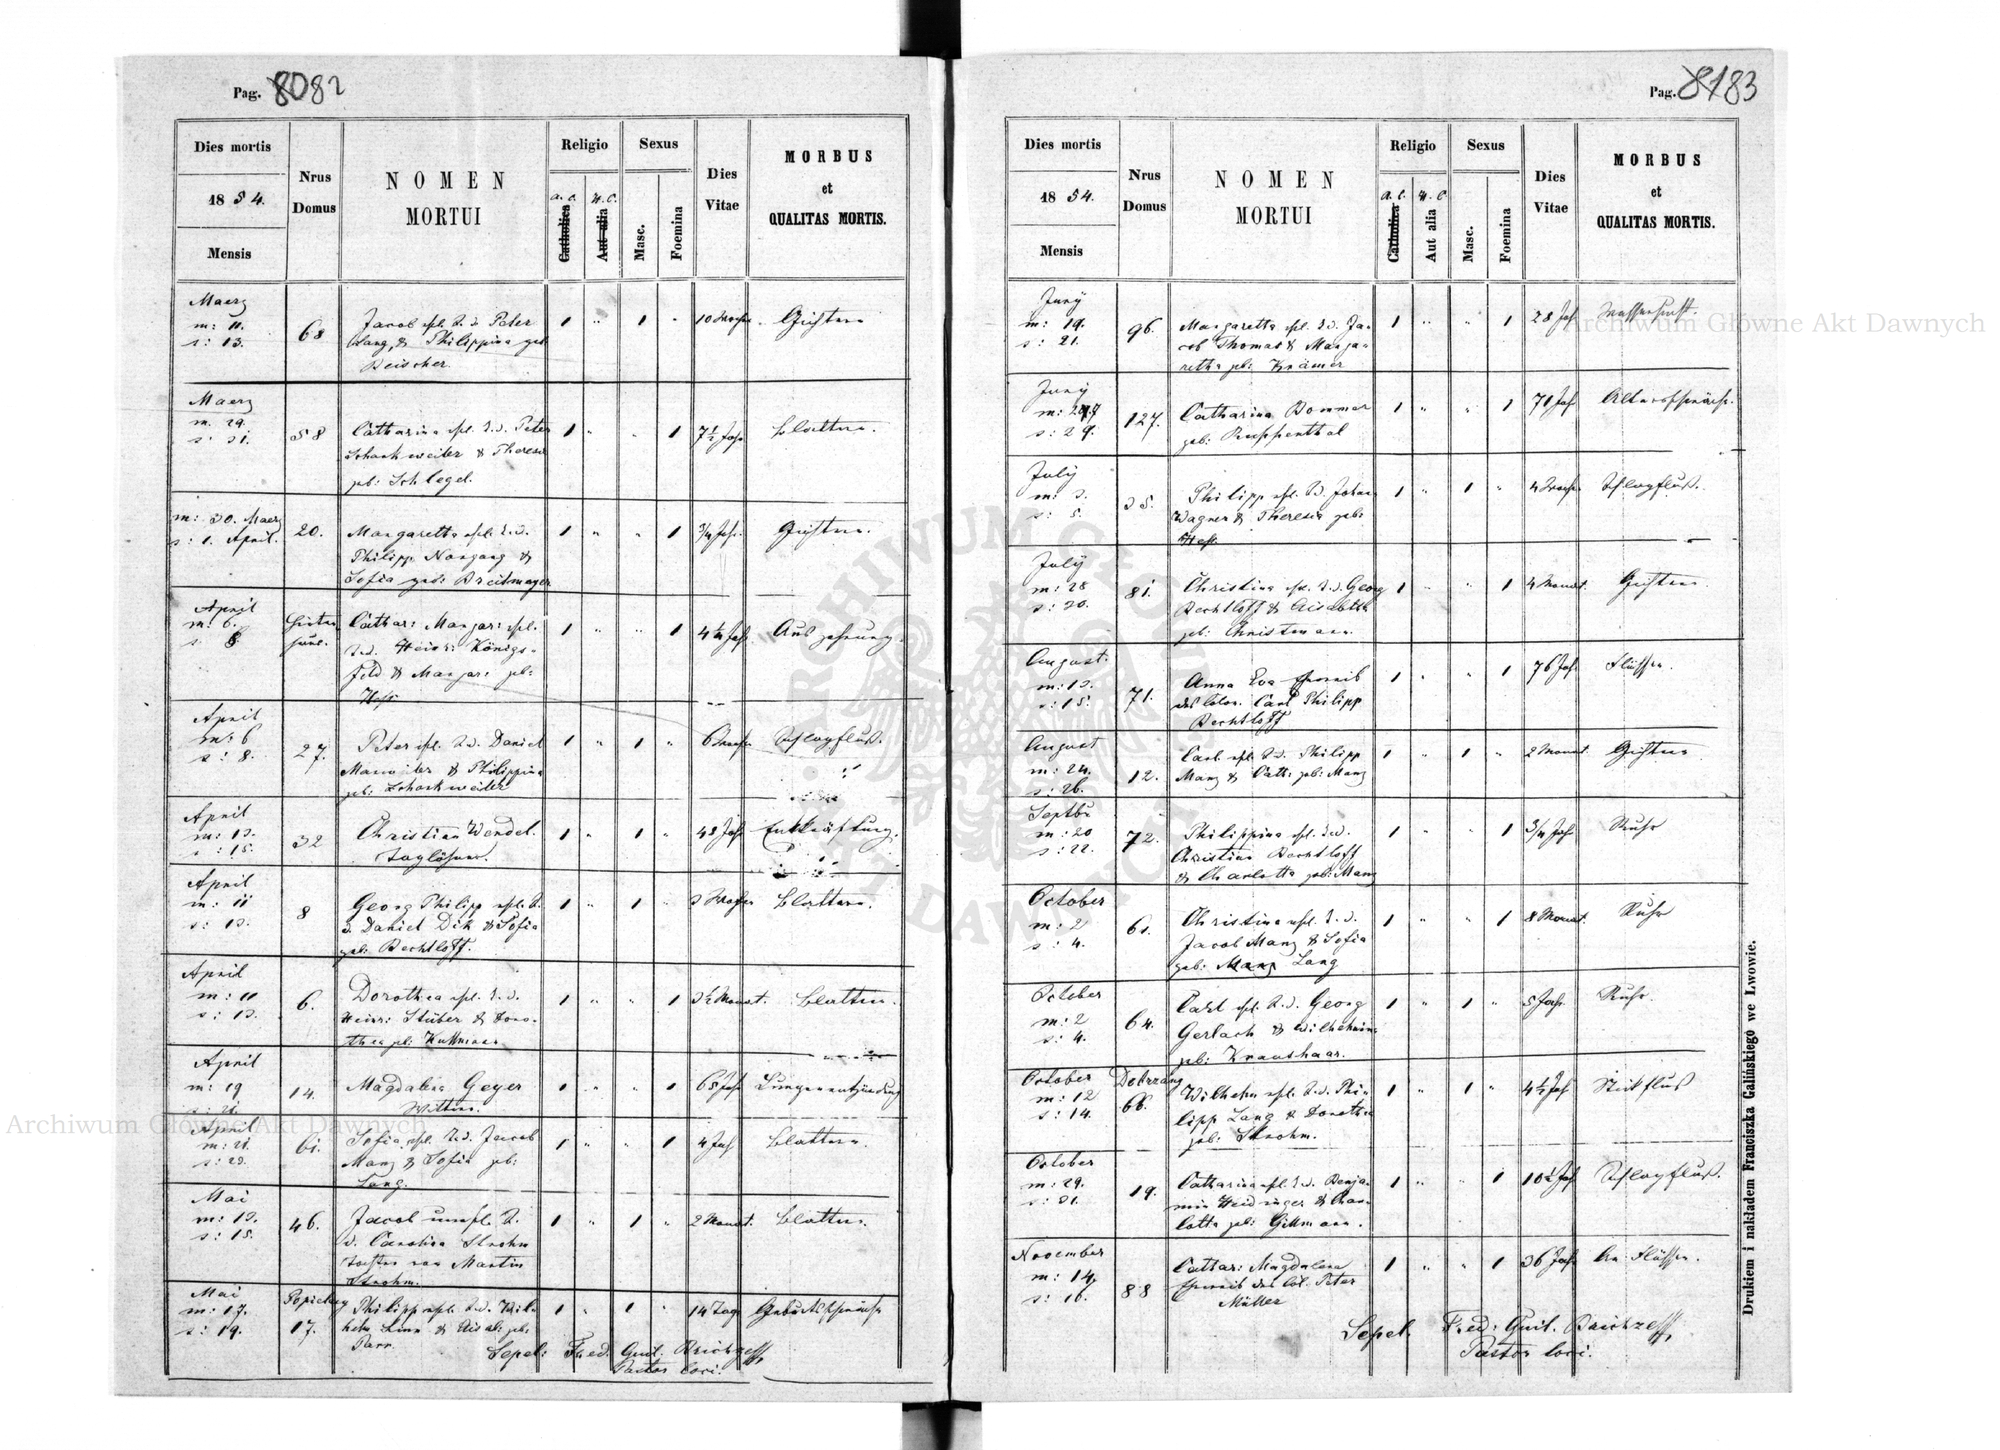 Pag. 8082
Dies mortis
1854.
Mensis
Nrus
Domus
NOMEN
MORTUI
Religio
a. c.
Catholica
H. C.
Aut alia
Sexus
Masc.
Foemina
Dies
Vitae
MORBUS
et
QUALITAS MORTIS.
Maerz
m: 11.
s: 13.
68
Jacob ehl. S. d. Peter
Lang, & Philippina geb
Reischer.
1 " 1 "
10 Woche
Gichtern
Maerz
m. 29.
s: 31.
58
Catharina ehl. T. d. Peter
Schankweiler & Theresia
geb: Schlegel.
1 " " 1
7½ Jahr
Blattern.
m: 30. Maerz
s: 1. April.
20.
Margaretha ehl. T. d.
Philipp Nargang &
Sofia geb: Breitmayer
1 " " 1
3/4 Jahr.
Gichtern.
April
m: 6.
s. 8
Cathar: Margar: ehl.
T. d. Heinr: Königs-
feld & Margar: geb:
Hess
1 " " 1
4¼ Jahr.
Auszehrung.
April
m: 6
s: 8.
27.
Peter ehl. S. d. Daniel
Manweiler & Philippina
geb: Schankweiler
1 " 1 "
6 Woche
Schlagfluß.
April
m: 13.
s: 15.
32
Christian Wendel.
Taglöhner.
1 " 1 "
48 Jahr
Entkräftung.
April
m: 11
s: 13.
8
Georg Philipp ehl. S.
d. Daniel Dik & Sofia
geb: Bechtloff.
1 " 1 "
3 Woche
Blattern.
April
m: 11
s: 13.
6.
Dorothea ehl. T. d.
Heinr: Stüber & Doro-
thea geb: Kuttmann
1 " " 1
3½ Monat.
Blattern.
April
m: 19
s: 21.
14.
Magdalena Geyer
Wittwe.
1 " " 1
65 Jahr
Lungenentzündung
April
m: 21.
s: 23.
61.
Sofia ehl. T. d. Jacob
Manz & Sofia geb:
Lang.
1 " " 1
4 Jahr
Blattern.
Mai
m: 13.
s: 15.
46.
Jacob unehl. S.
d. Carolina Strohm
Tochter von Martin
Strohm.
1 " 1 "
2 Monat.
Blattern.
Mai
m: 17.
s: 19.
17.
Philipp ehl. S. d. Wil-
helm Linn & Elisab: geb:
Parr.
1 " 1 "
14 Tage
Geburtsschwäche
Sepel: Fred. Guil.
Pastor loci.
Pag. 8183
Dies mortis
1854.
Mensis
Nrus
Domus
NOMEN
MORTUI
Religio
a. c.
Catholica
H. C
Aut alia
Sexus
Masc.
Foemina
Dies
Vitae
MORBUS
et
QUALITAS MORTIS.
Juny
m: 19.
s: 21.
96.
Margaretha ehl. T. d. Ja-
cob Thomas & Marga-
retha geb: Krämer
1 " " 1
28 Jahr
Wassersucht.
Juny
m: 27
s: 29.
127.
Catharina Bommer
geb: Ruppenthal
1 " " 1
71 Jahr
Altersschwäche.
July
m: 3.
s: 5.
35.
Philipp ehl. S. d. Johan
Wagner & Theresia geb:
Hess.
1 " 1 "
4 Woche
Schlagfluß.
July
m: 28
s: 30.
81.
Christina ehl. T. d. Georg
Bechtloff & Elisabeth
geb: Christmann.
1 " " 1
4 Monat.
Gichtern
August.
m: 13.
s: 15.
71.
Anna Eva Eheweib
des Colon. Carl Philipp
Bechtloff
1 " " 1
76 Jahr
August
m: 24.
s: 26.
12.
Carl ehl. S. d. Philipp
Manz & Cath: geb: Manz
1 " 1 "
2 Monat.
Gichtern
Septbr
m: 20
s: 22.
72.
Philippina ehl. T. d.
Christian Bechtloff
& Charlotta geb: Manz
1 " " 1
3/4 Jahr
Ruhr
October
m: 2
s: 4.
61.
Christina ehl. T. d.
Jacob Manz & Sofia
geb: Manz Lang
1 " " 1
8 Monat.
Ruhr
October
m: 2
s: 4.
64.
Carl ehl. S. d. Georg
Gerlach & Wilhelmina
geb: Kraushaar.
1 " 1 "
5 Jahr.
Ruhr.
October
m: 12
s: 14.
Dobrzany
66.
Wilhelm ehl. S. d. Phi-
lipp Lang & Dorothea
geb: Strohm.
1 " 1 "
4½ Jahr
Stickfluß
October
m: 29.
s: 31.
19.
Catharina ehl. T. d. Benja-
min Heidinger & Char-
lotta geb: Gittmann.
1 " " 1
10½ Jahr
Schlagfluß.
November
m: 14.
s: 16.
88
Cathar: Magdalena
Eheweib des Col: Peter
Müller
1 " " 1
36 Jahr
Sepel. Fred: Guil.
Pastor loci.
Drukiem i nakładem Franciszka Galińskiego we Lwowie.
Archiwum Główne Akt Dawnych
Archiwum Główne Akt Dawnych
ARCHIWUM GŁÓWNE AKT DAWNYCH